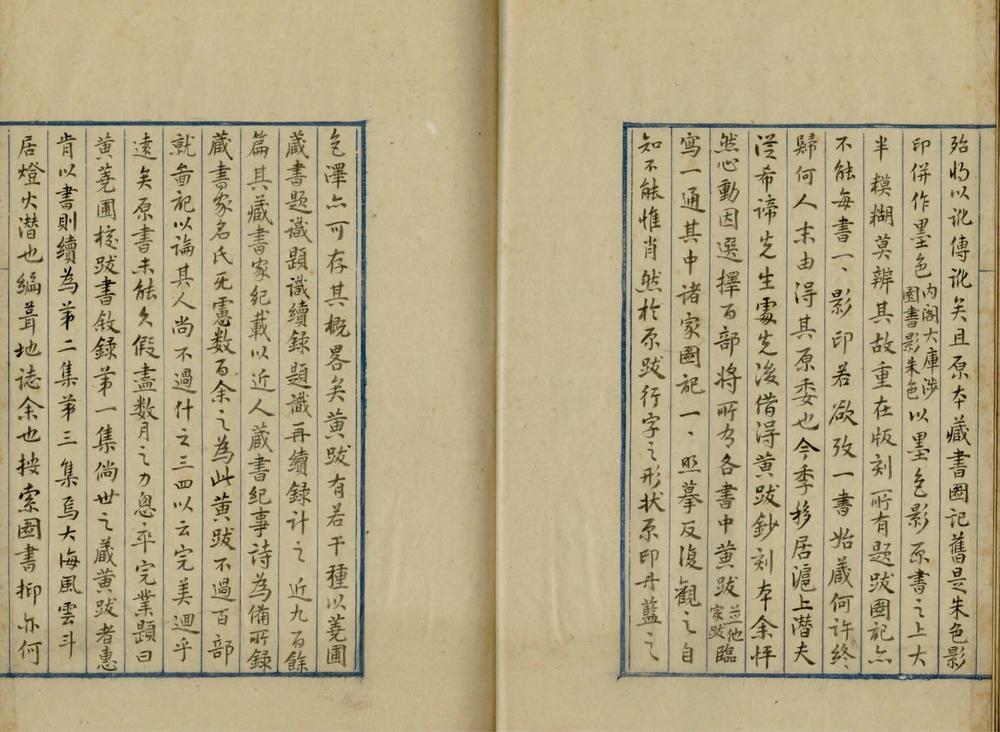 殆將以訛傳訛矣且原本藏書圖記舊是朱色影
印併作墨色內閣大庫涉園書影朱色以墨色影原書之上大
半糢糊莫辨其故重在版刻所有題跋圖記亦
不能每書一、影印若欲攷一書始藏何許終
歸何人末由得其原委也今季移居滬上潛夫
從希諦先生處先後借得黃跋鈔刻本余怦
然心動因選擇百部將所有各書中黃跋並他家跋臨
寫一通其中諸家圖記一、照摹反復觀之自
知不能惟肖然於原跋行字之形狀原印丹藍之
色澤亦可存其概畧矣黃跋有若干種以蕘圃
藏書題識題識續錄題識再續錄計之近九百餘
篇其藏書家紀載以近人藏書紀事詩為備所錄
藏書家名氏死憲數百余之為此黃跋不過百部
就啚記以論其人尚不過什之三四以云完美迴乎
遠矣原書未能久假盡數月之力恩卒完業題曰
黃蕘圃校跋書敘錄第一集倘世之藏黃跋者惠
肯以書則續為第二集第三集焉大海風雲斗
居燈火潛也編葺地誌余也按索圖書抑亦何